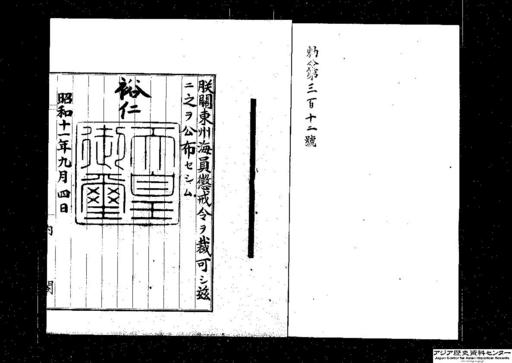 勅令第三百十二號
朕關東州海員懲戒令ヲ裁可シ玆
ニ之ヲ公布セシム
裕仁
天皇御璽
昭和十一年九月四日
内閣
アジア歴史資料センター
Japan Center for Asian Historical Records